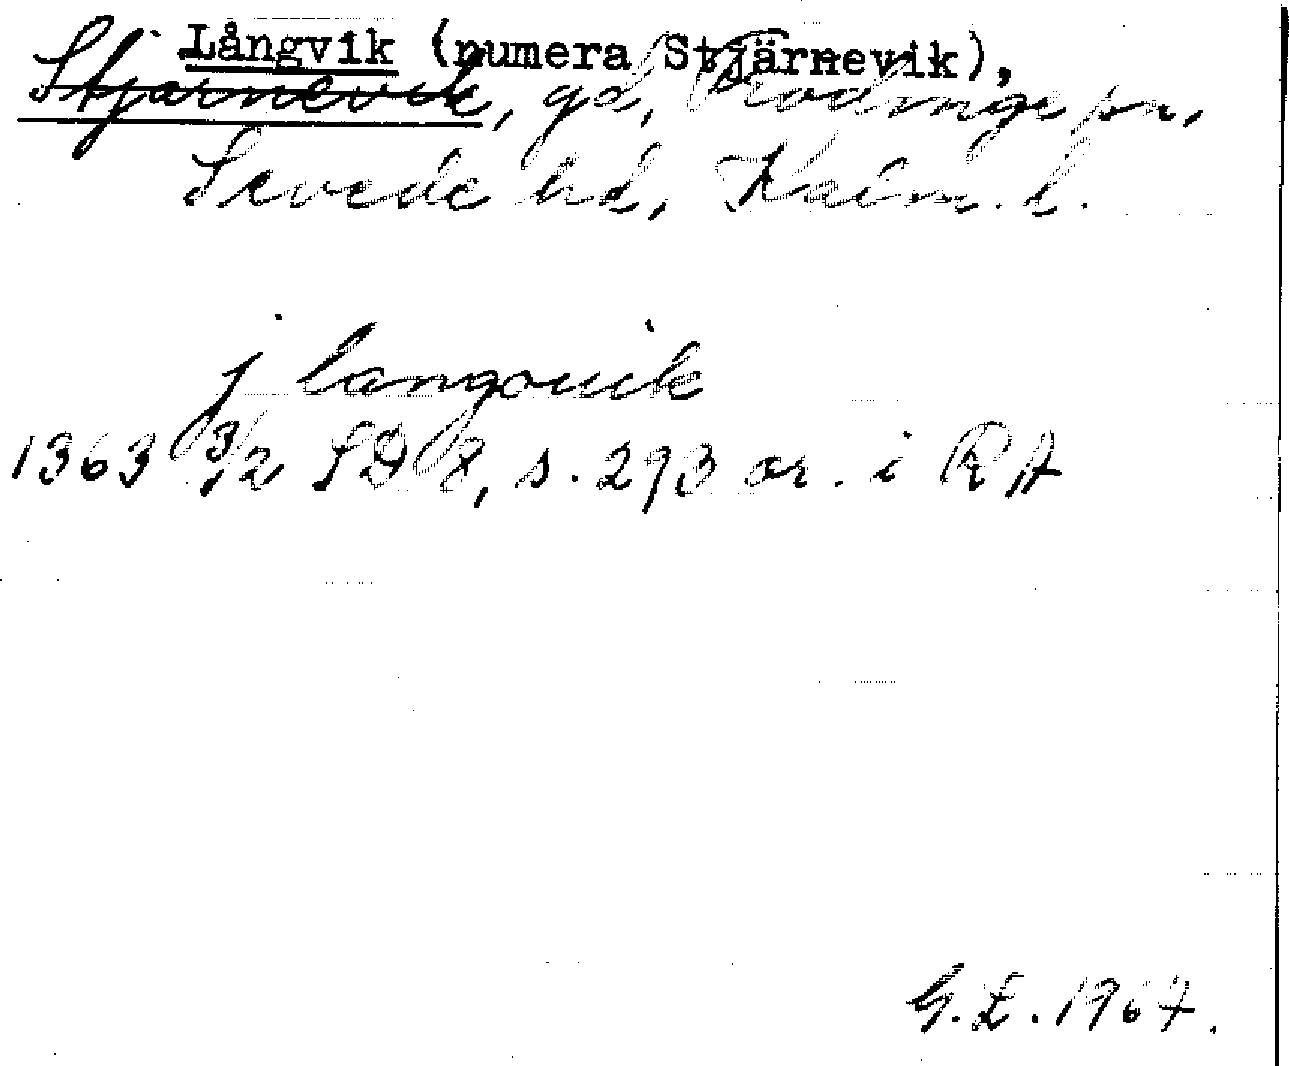 Långvik (numera Stjärnevik),
Stjarnevik, gd, Rödinge sn,
Sevede hd, Kalm. l.
j langouik
1363 3/2 SD 8, s. 293 or. i RA
G. L. 1967.